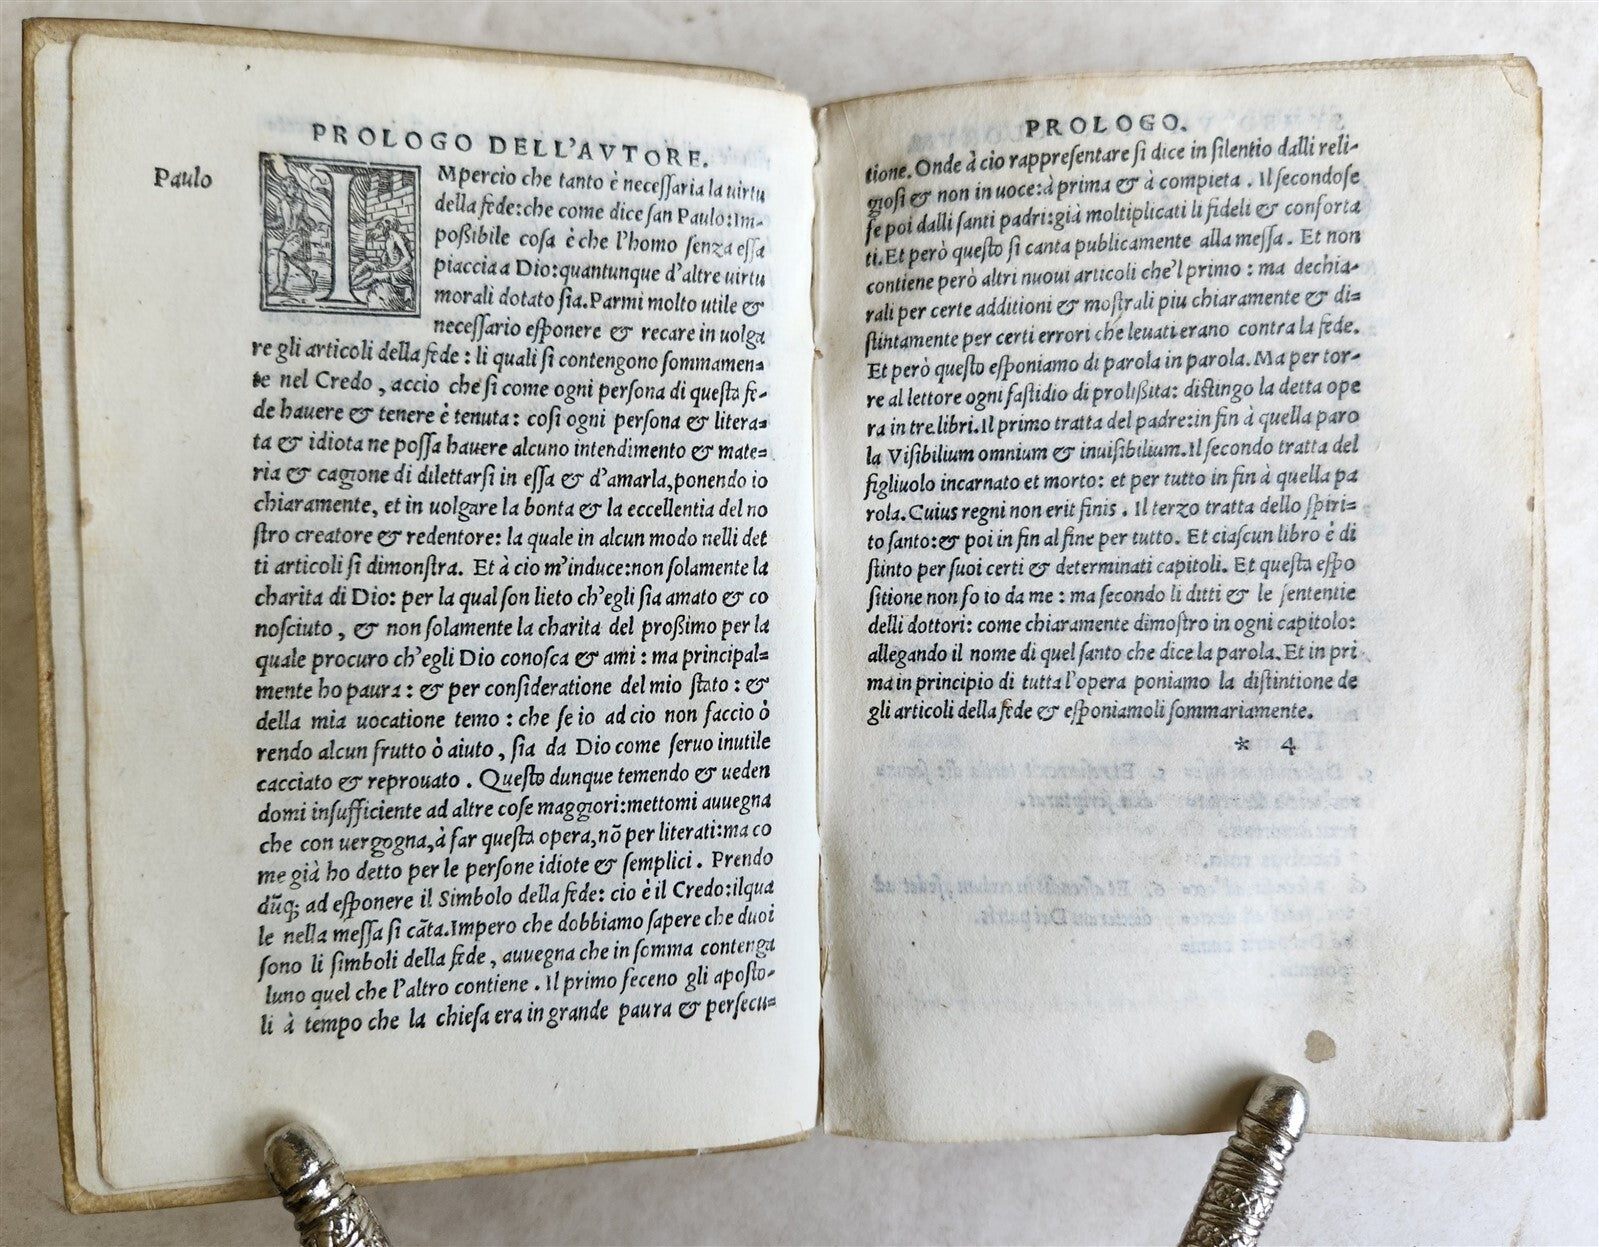 PROLOGO DELL'AVTORE.
Paulo
IMpercio che tanto è necessaria la uirtu
della fede: che come dice san Paulo: Im-
possibile cosa è che l'homo senza essa
piaccia a Dio: quantunque d'altre uirtu
morali dotato sia. Parmi molto utile &
necessario esponere & recare in uolga
re gli articoli della fede: li quali si contengono sommamen=
te nel Credo, accio che si come ogni persona di questa fe-
de hauere & tenere è tenuta: cosi ogni persona & litera=
ta & idiota ne possa hauere alcuno intendimento & mate=
ria & cagione di dilettarsi in essa & d'amarla, ponendo io
chiaramente, et in uolgare la bonta & la eccellentia del no
stro creatore & redentore: la quale in alcun modo nelli det
ti articoli si dimonstra. Et à cio m'induce: non solamente la
charita di Dio: per la qual son lieto ch'egli sia amato & co
nosciuto, & non solamente la charita del prossimo per la
quale procuro ch'egli Dio conosca & ami: ma principal=
mente ho paura: & per consideratione del mio stato: &
della mia uocatione temo: che se io ad cio non faccio ò
rendo alcun frutto ò aiuto, sia da Dio come seruo inutile
cacciato & reprouato. Questo dunque temendo & ueden
domi insufficiente ad altre cose maggiori: mettomi auuegna
che con uergogna, à far questa opera, nõ per literati: ma co
me già ho detto per le persone idiote & semplici. Prendo
dũq; ad esponere il Simbolo della fede: cio è il Credo: ilqua
le nella messa si cãta. Impero che dobbiamo sapere che duoi
sono li simboli della fede, auuegna che in somma contenga
luno quel che l'altro contiene. Il primo feceno gli aposto-
li à tempo che la chiesa era in grande paura & persecu=
PROLOGO.
tione. Onde à cio rappresentare si dice in silentio dalli reli-
giosi & non in uoce: à prima & à compieta. Il secondo se
fe poi dalli santi padri: già moltiplicati li fideli & conforta
ti. Et però questo si canta publicamente alla messa. Et non
contiene però altri nuoui articoli che'l primo: ma dechia-
rali per certe additioni & mostrali piu chiaramente & di=
stintamente per certi errori che leuati erano contra la fede.
Et però questo esponiamo di parola in parola. Ma per tor-
re al lettore ogni fastidio di prolissita: distingo la detta ope
ra in tre libri. Il primo tratta del padre: in fin à quella paro
la Visibilium omnium & inuisibilium. Il secondo tratta del
figliuolo incarnato et morto: et per tutto in fin à quella pa
rola. Cuius regni non erit finis. Il terzo tratta dello spiri-
to santo: & poi in fin al fine per tutto. Et ciascun libro è di
stinto per suoi certi & determinati capitoli. Et questa espo
sitione non fo io da me: ma secondo li ditti & le sententie
delli dottori: come chiaramente dimostro in ogni capitolo:
allegando il nome di quel santo che dice la parola. Et in pri
ma in principio di tutta l'opera poniamo la distintione de
gli articoli della fede & esponiamoli sommariamente.
* 4